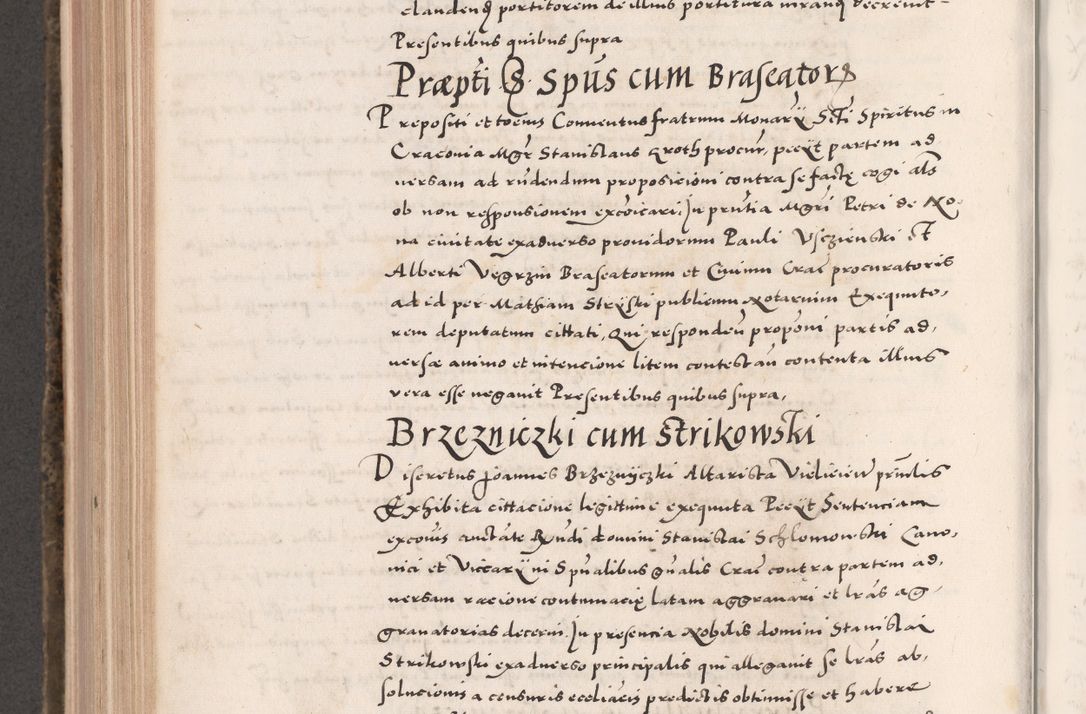 claudendꝫ portitorem de illius portitura
Presentibus quibus supra
Præpti S. Spūs cum Braseator
Prepositi et toeius Conuentus fratrum Monarÿ Scti Spiritus in
Craconia Mgr Stanislaus Groth procur, peciit partem ad
uersam ad rūdendum proposicioni contra se factę cogi als
ob non responsionem excōicari, In pnūtia Mgri Petri de No-
ua ciuitate exaduerso prouidorum Pauli Vsczienski et
Alberti Vegrzin Braseatorum et Ciuium Crac procuratoris
ad id per Mathiam Strÿski publicum Notarium Exequuto,
rem deputatum cittati, Qui respondeñ propōni partis ad,
uersæ animo et intencione litem contestañ contenta illius
vera esse negauit Presentibus quibus supra,
Brzezniczki cum Strikowski
Discretus Joannes Brzeznÿczki Altarista Vieliciew prñcilis
Exhibita cittacione legittime exequuta Peciit Sentenciam
excōis auctāte Rxndi domini Stanislai Schlomowski Cano,
nici et Viccarÿ ni Spūalibus gñalis Crac contra partem ad,
uersam racione contumacię latam aggrauari et lrās ag-
grauatorias decerni. In presencia Nobilis domini Stanislai
Strikowski exaduerso principalis qui allegauit se lrās ab,
solucionis a censuris eccliacis predictis obtinuisse et habere